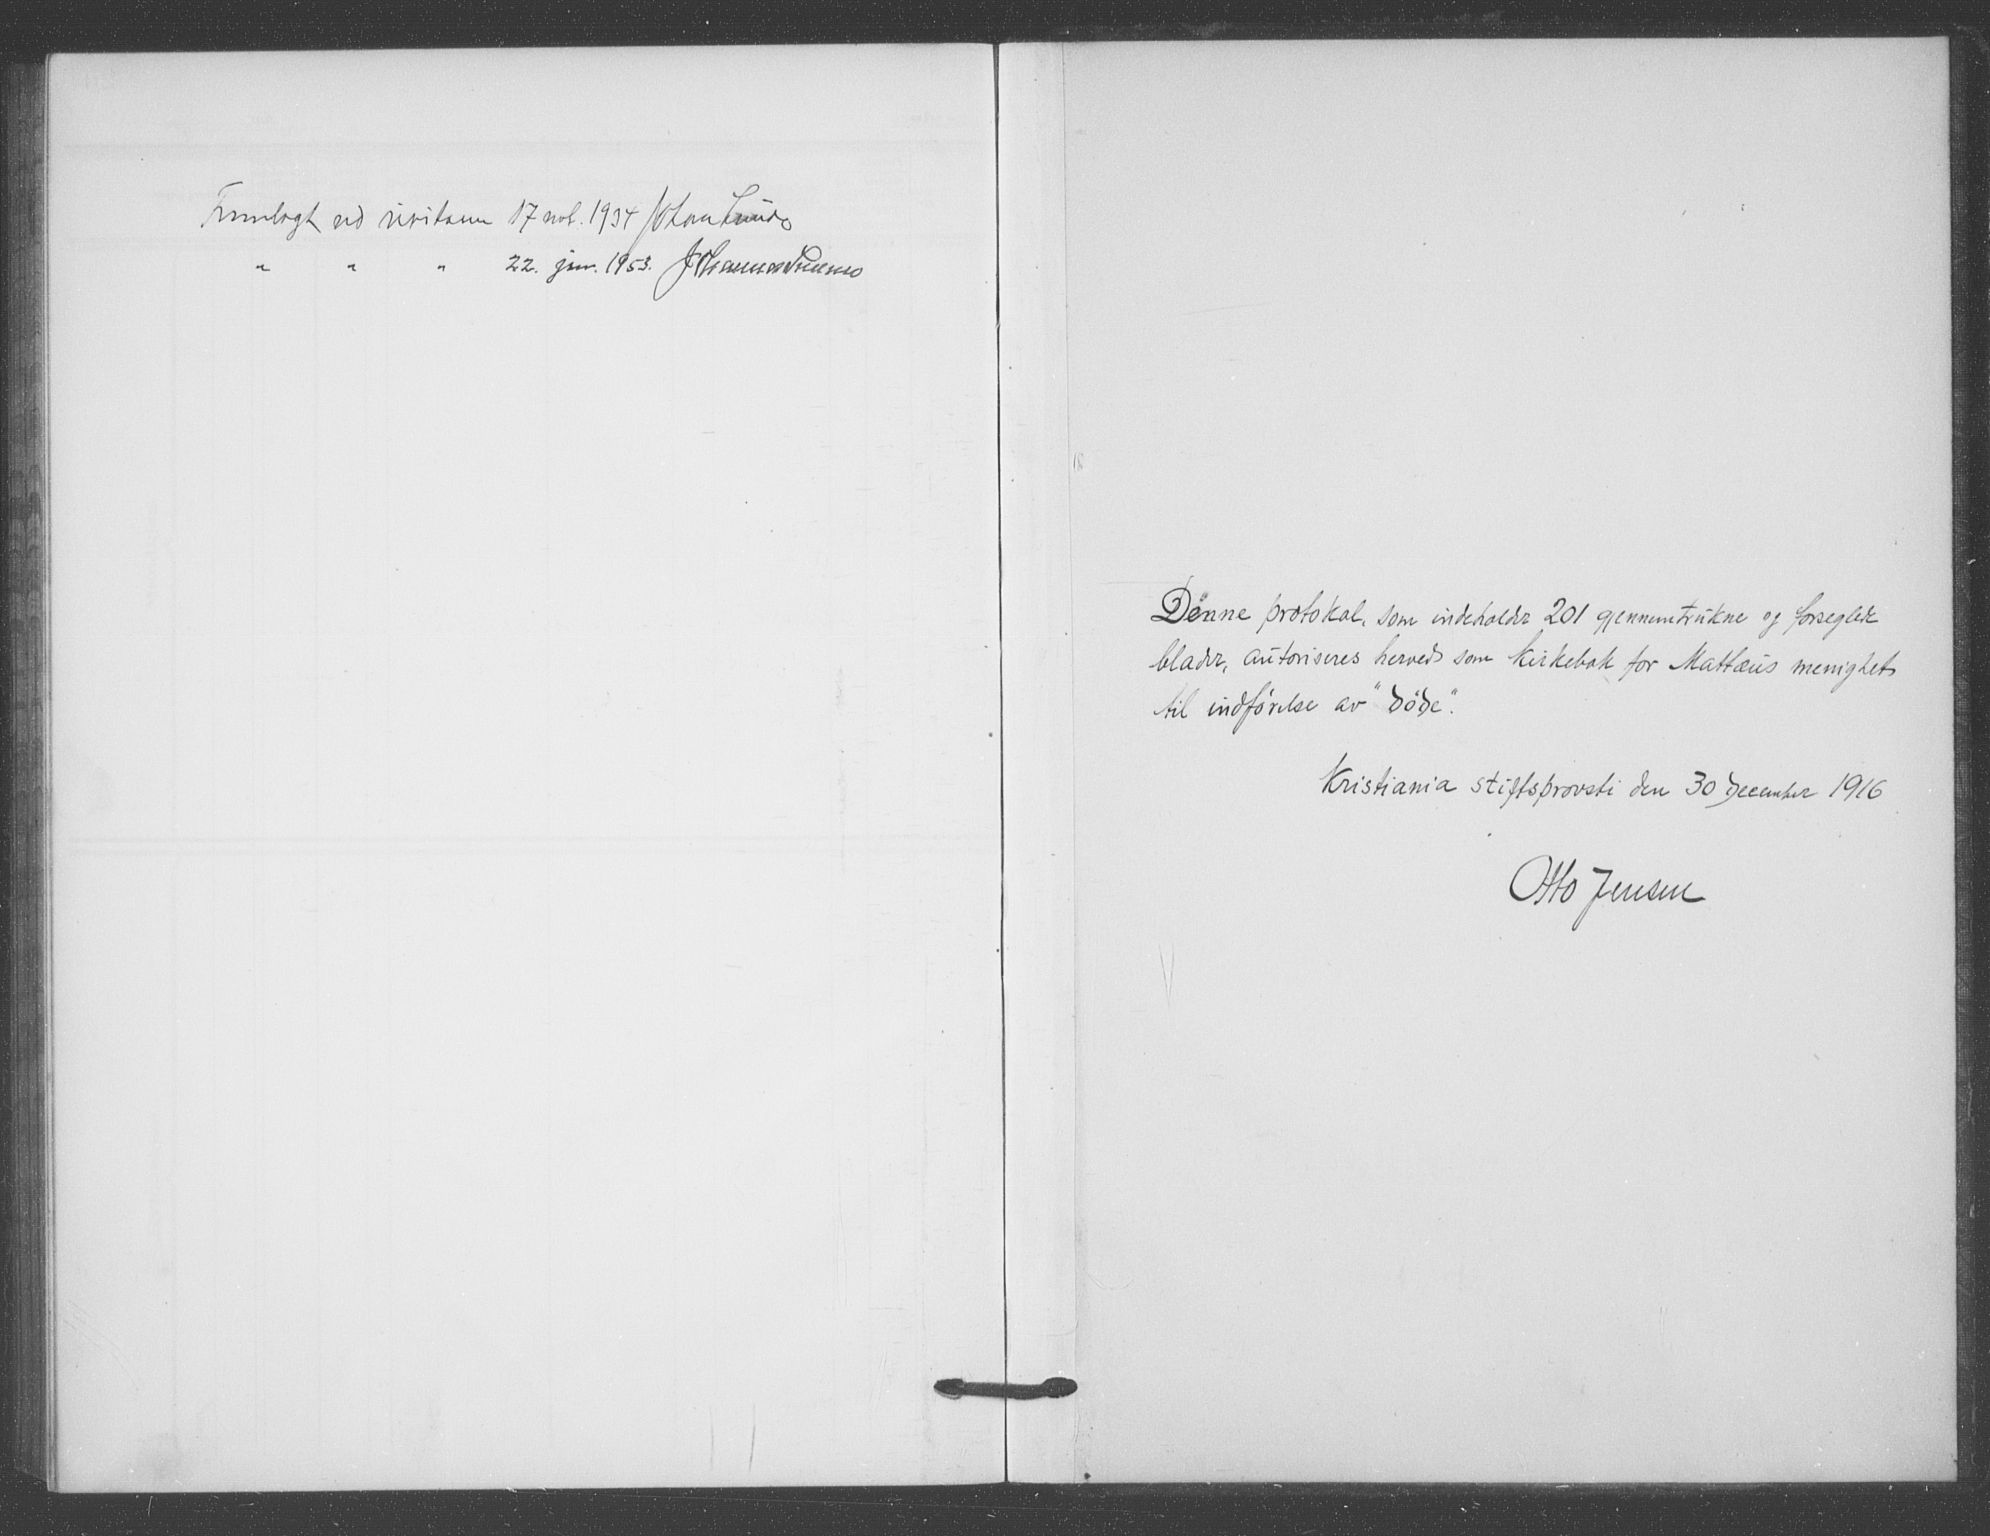 Fremlagt ved visitasen 17 nov. 1934 Johan Lunde
" " " 22. jan. 1953. Johannes Smemo
Denne protokol, som indeholder 201 gjennemtrukne og forseglede
blader, autoriseres herved som kirkebok for Mattæus menighet
til indførelse av "døde".
Kristiania stiftsprovsti den 30 December 1916
Otto Jensen